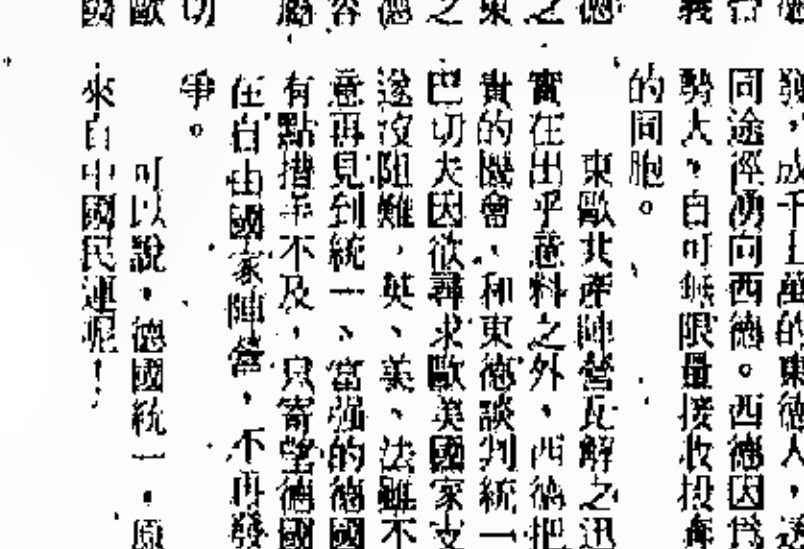 發，成千上萬的東德人，透
同途徑湧向西德。西德因爲
勢大，自可無限量接收投奔
的同胞。
東歐共產陣營瓦解之迅
實在出乎意料之外，西德把
貴的機會，和東德談判統一
巴切夫因欲尋求歐美國家支
遂沒阻難，英、美、法雖不
意再見到統一、富强的德國
有點措手不及，只寄望德國
在自由國家陣營，不再發
爭。
可以說，德國統一，原
來自中國民運呢！
義
德
之
東
之
德
容
切
歐
國